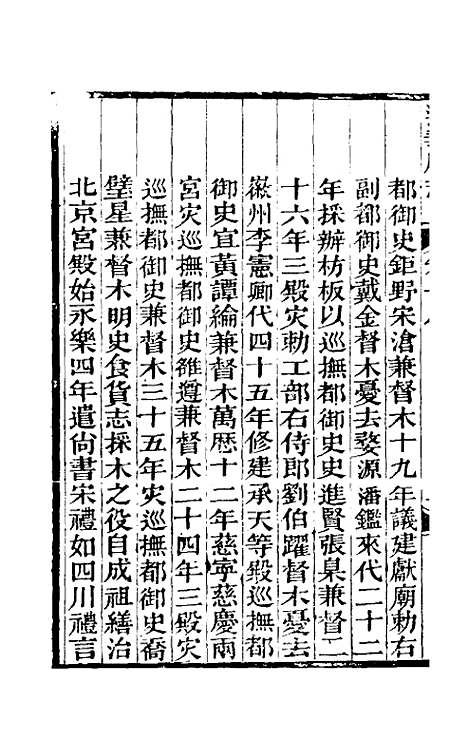 都御史鉅野宋滄兼督木十九年議建獻廟勅右
副都御史戴金督木憂去婺源潘鑑來代二十二
年採辦枋板以巡撫都御史史進賢張臬兼督二
十六年三殿灾勅工部右侍郎劉伯躍督木憂去
徽州李憲卿代四十五年修建承天等殿巡撫都
御史宜黃譚綸兼督木萬厯十二年慈寧慈慶兩
宮灾巡撫都御史雒遵兼督木二十四年三殿灾
巡撫都御史兼督木三十五年灾巡撫都御史喬
璧星兼督木明史食貨志採木之役自成祖繕治
北京宮殿始永樂四年遣尙書宋禮如四川禮言